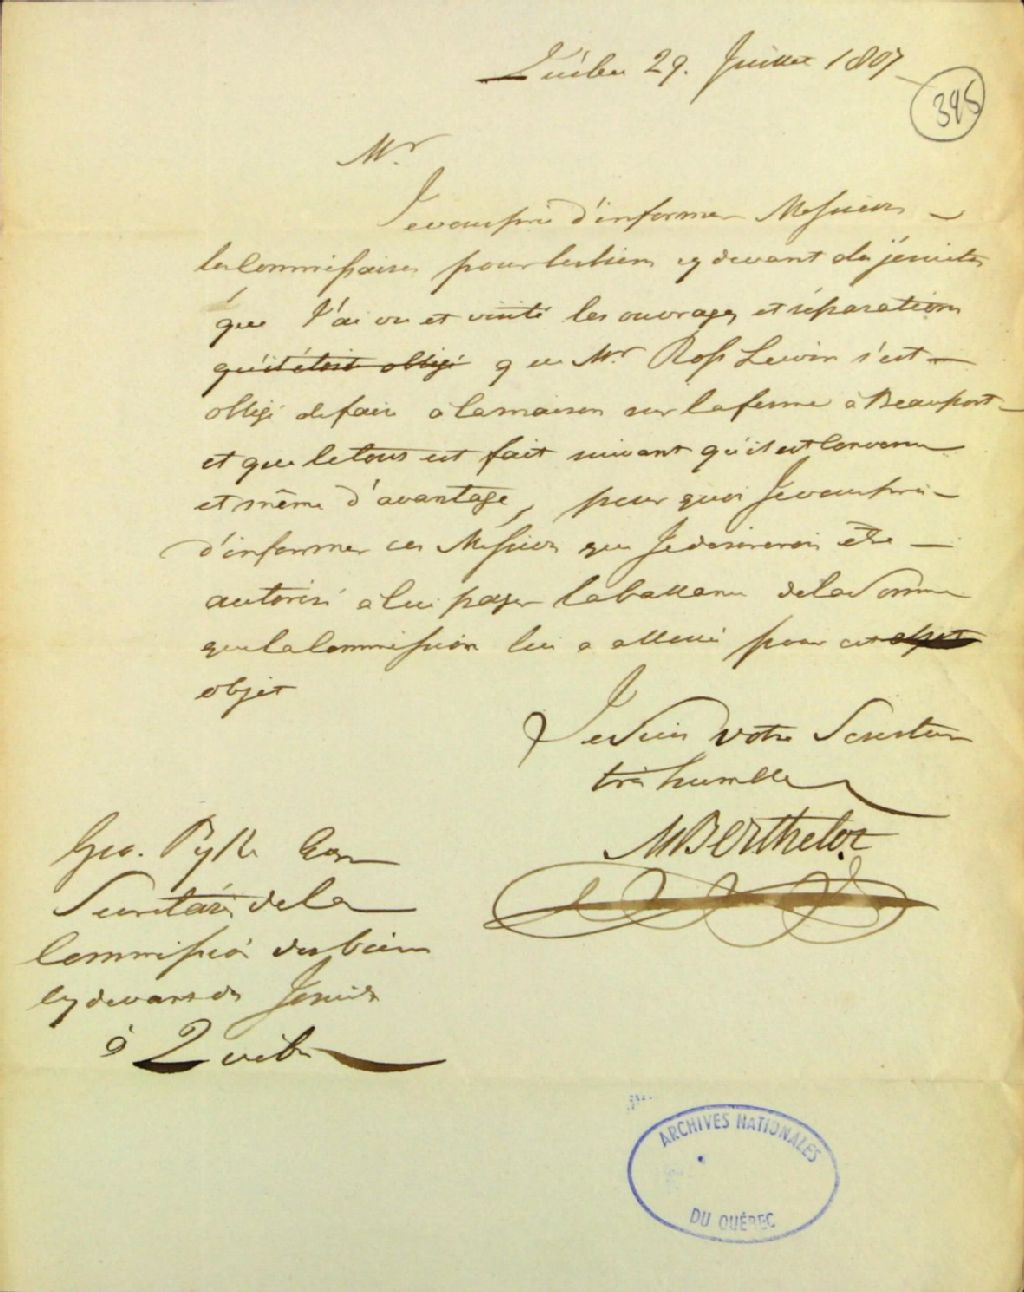 Québec 29. Juillet 1807
395
Mr
Je vous prie d'informer Messieurs
les Commissaires pour les biens cy devant des jésuites
que J'ai vu et visité les ouvrages et réparations
qu'il étoit obligé que Mr Ross Lewin s'est
obligé de faire à la maison sur la ferme à Beauport
et que le tous est fait suivant qu'il est convenu
et même d'avantage, pour quoi Je vous prie
d'informer ces Messieurs que Je desirerois être
autorisé à lui payer la ballance de la Somme
que la Commission lui a alloué pour cet objet
objet
Je suis votre Serviteur
très humble
M Berthelot
Geo. Pyke
Secretaire de la
Commission des biens
cy devant des Jesuites
à Québec
ARCHIVES NATIONALES
DU QUÉBEC